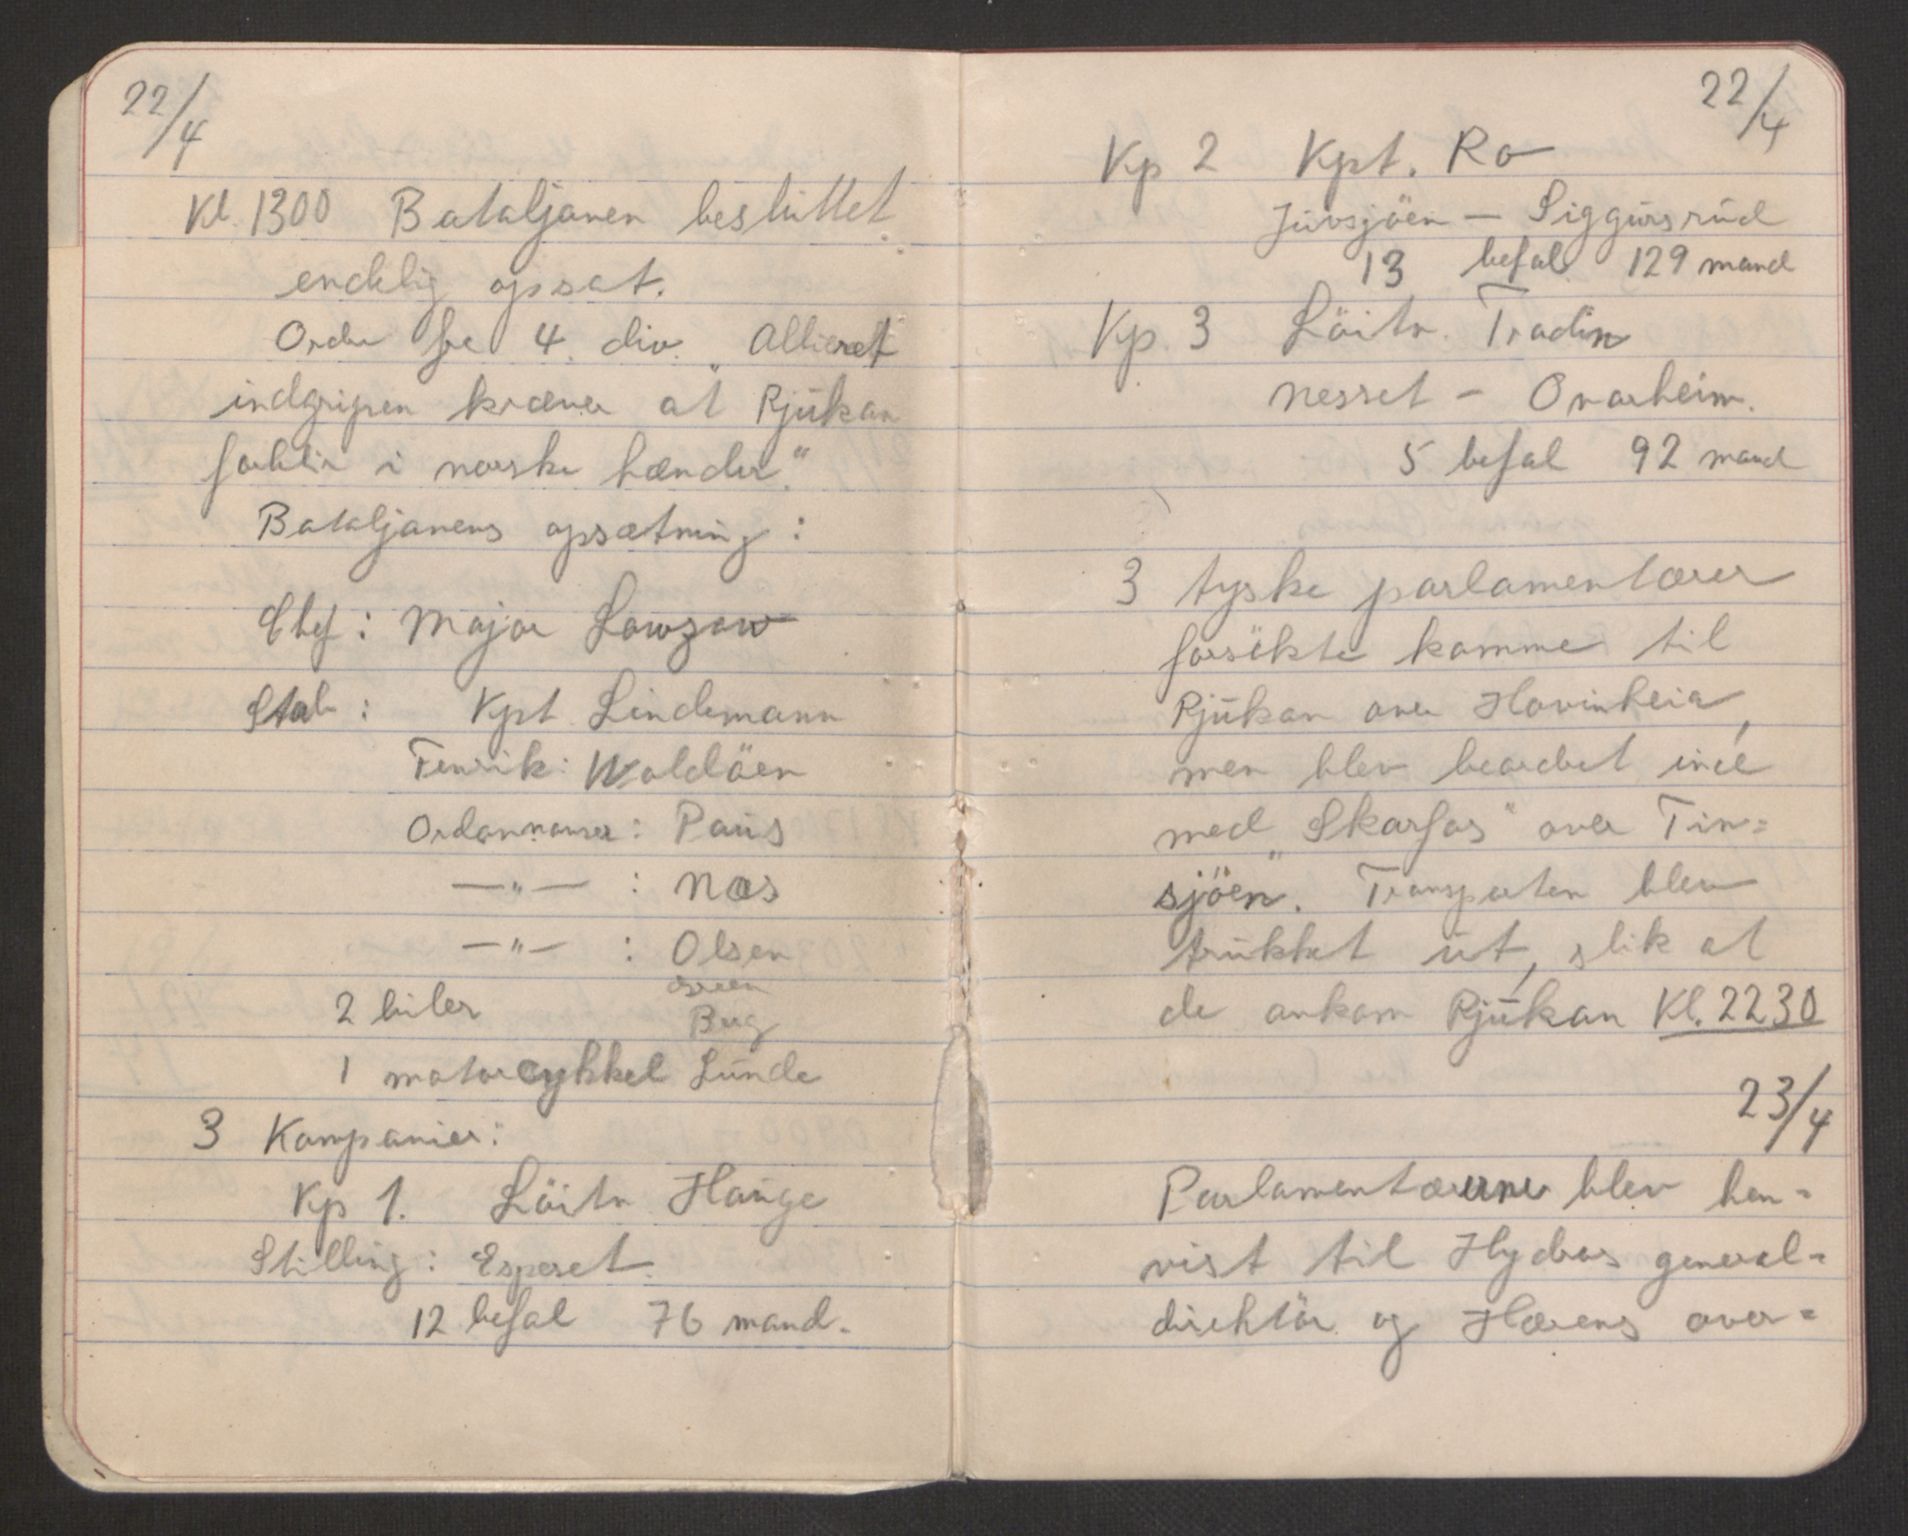 22/4
Kl. 1300 Bataljonen besluttet
endelig opsat.
Ordre fra 4. div. „Alliert
indgripen kræver at Rjūkan
forblir i norske hænder.“
Bataljonens opsætning:
Chef: Major Lowzow
Stab: Kpt Lindemann
Fenrik: Woldöen
Ordonnanser: Paus
—„— : Næs
—„— : Olsen
2 biler
Berg
1 motorcykkel Lūnde
3 Kompanier:
Kp 1. Löitn Haūge
Stilling: Espeset.
12 befal 76 mand.
22/4
Kp 2 Kpt. Ro
Jūvsjöen — Siggūrsrūd
13 befal 129 mand
Kp. 3 Löitn. Tradin
Nesset — Ornarheim.
5 befal 92 mand
3 tyske parlamentærer
forsökte komme til
Rjūkan over Hovinheia,
men blev beordret inn
med „Skarfos“ over Tin=
sjöen. Transporten blev
trukket ūt, slik at
de ankom Rjūkan Kl. 2230
23/4
Parlamentærerne blev hen=
vist til Hydros general=
direktör og Hærens over=